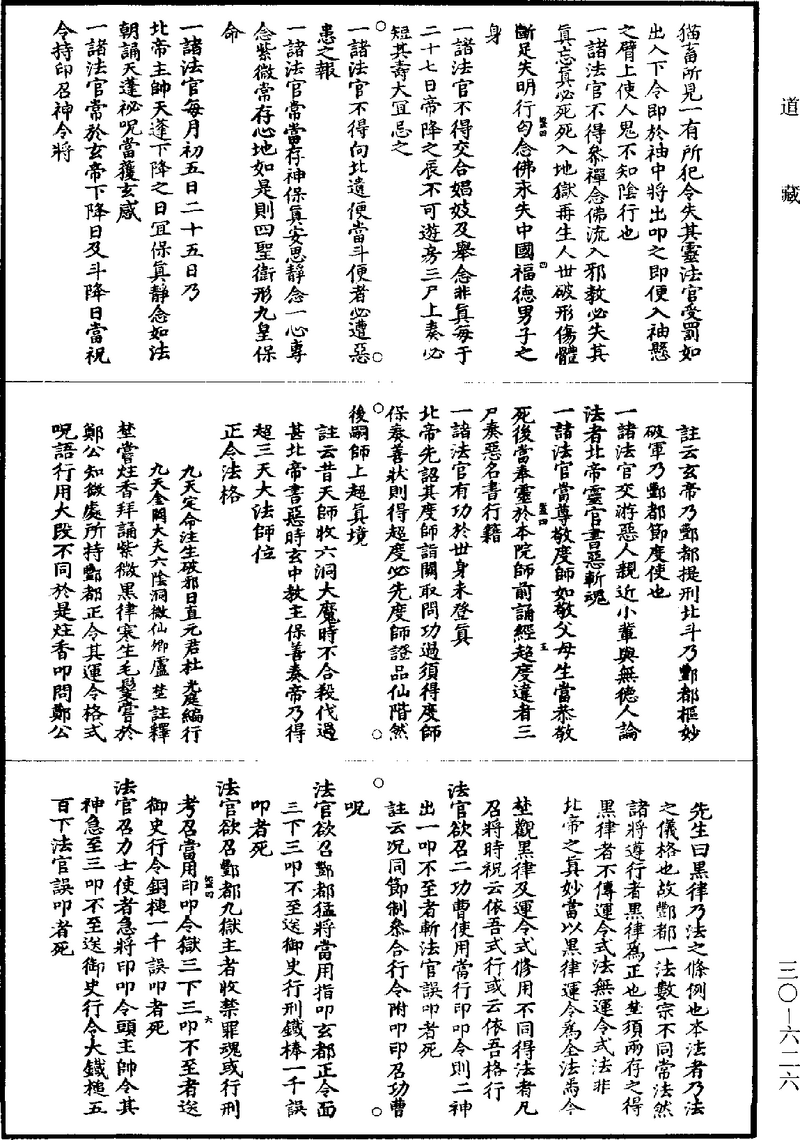 道藏
猫畜所見一有所犯令失其靈法官受罰如
出入下令即於袖中將出叩之即便入袖懸
之臂上使人鬼不知陰行也
一諸法官不得叅禪念佛流入邪教必失其
真忘真必死死入地獄再生人世破形傷體
斷足失明行匃念佛永失中國福德男子之
身
一諸法官不得交合娼妓及舉念非真每于
二十七日帝降之辰不可遊房三尸上奏必
短其壽大宜忌之
一諸法官不得向北遺便當斗便者必遭惡
患之報
一諸法官常當存神保真安思靜念一心專
念紫微常存心地如是則四聖衛形九皇保
命
一諸法官每月初五日二十五日乃
北帝主帥天蓬下降之日宜保真靜念如法
朝誦天蓬祕呪當獲玄感
一諸法官常於玄帝下降日及斗降日當祝
令持印召神令將
註云玄帝乃酆都提刑北斗乃酆都樞妙
破軍乃酆都節度使也
一諸法官交游惡人親近小輩與無德人論
法者北帝靈官書惡斬魂
一諸法官當尊敬度師如敬父母生當恭敬
死後當奉靈於本院師前誦經超度違者三
尸奏惡名書行籍
一諸法官有功於世身未登真
北帝先詔其度師詣闕取問功過須得度師
保奏善狀則得超度必先度師證品仙階然
後嗣師上超真境
註云昔天師收六洞大魔時不合殺伐過
甚北帝書惡時玄中教主保善奏帝乃得
超三天大法師位
正令法格
九天定命注生破邪日直元君杜光庭編行
九天金闕大夫六陰洞微仙卿盧埜註釋
埜嘗炷香拜誦紫微黑律寒生毛髮嘗於
鄭公知微處所持酆都正令其運令格式
呪語行用大段不同於是炷香叩問鄭公
先生曰黑律乃法之條例也本法者乃法
之儀格也故酆都一法數宗不同常法然
諸將遵行者黑律為正也埜須兩存之得
黑律者不傳運令式法無運令式法非
北帝之真妙當以黑律運令為全法焉今
埜觀黑律及運令式修用不同得法者凡
召將時祝云依吾式行或云依吾格行
法官欲召二功曹使用當行印叩令則二神
出一叩不至者斬法官誤叩者死
註云況同節制叅合行令附叩印召功曹
呪
法官欲召酆都猛將當用指叩玄都正令面
三下三叩不至送御史行刑鐵棒一千誤
叩者死
法官欲召酆都九獄主者收禁罪魂或行刑
考召當用印叩令獄三下三叩不至者送
御史行令銅槌一千誤叩者死
法官召力士使者急將印叩令頭主帥令其
神急至三叩不至送御史行令大鐵槌五
百下法官誤叩者死
三〇—六二六